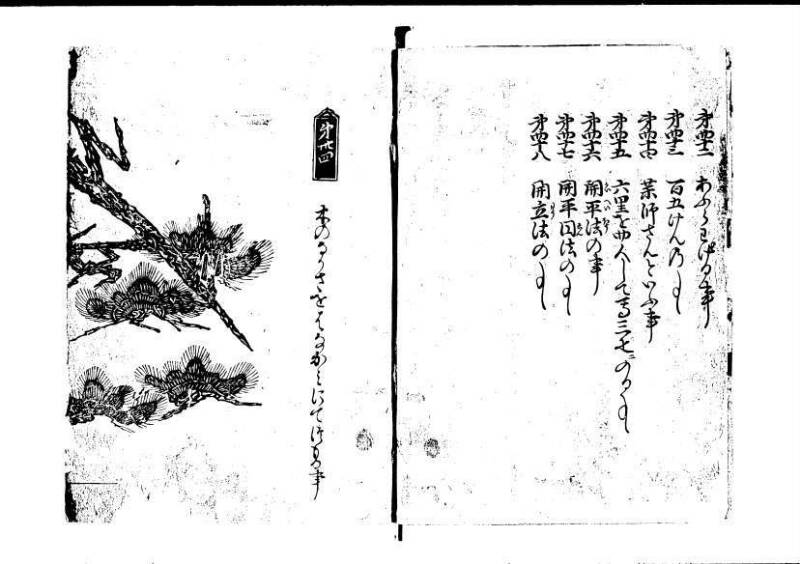 第四十二 あふらわける事
第四十三 百五けんの事
第四十四 薬師さんといふ事
第四十五 六里を四人して馬三疋のる事
第四十六 開平法の事
第四十七 開平円法の事
第四十八 開立法の事
第卅四
木のなかさをはなかみにてつもる事